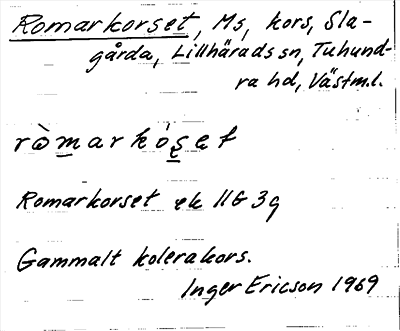 Romarkorset, Ms, kors, Sla-
gårda, Lillhärads sn, Tuhund-
ra hd, Västm.l.
ròmarkóset
Romarkorset ek 11G 3g
Gammalt kolerakors.
Inger Ericson 1969